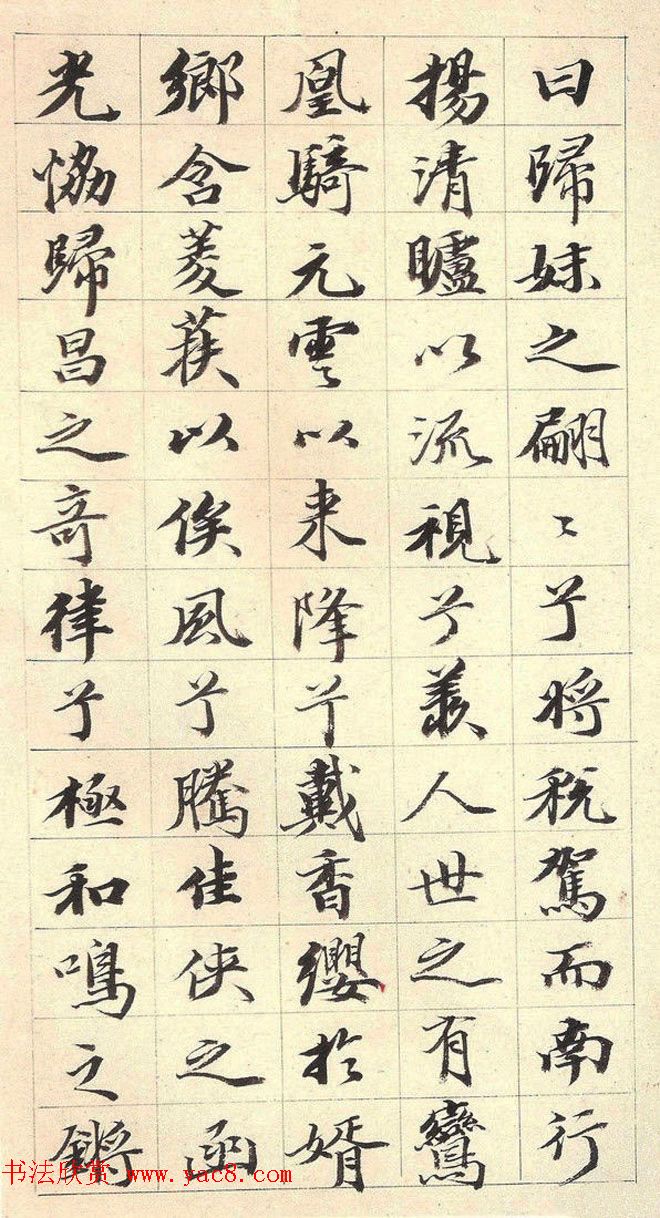 曰歸妹之翩〻兮將稅駕而南行
揚清矑以流視兮羨人世之有鸞
凰騎元雲以来降兮戴香纓於婿
鄉含菱蕻以俟風兮騰佳俠之函
光恊歸昌之奇律兮極和鳴之鏘
书法欣赏 www.yac8.com